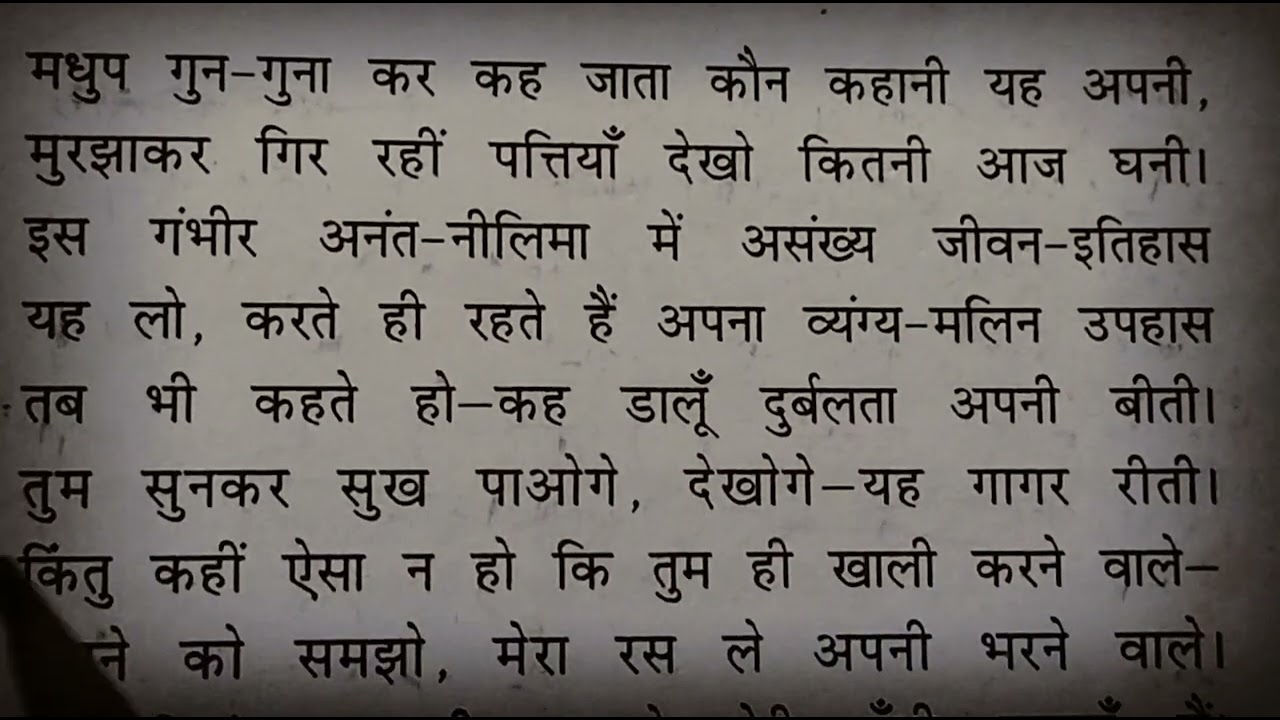 मधुप गुन-गुना कर कह जाता कौन कहानी यह अपनी,
मुरझाकर गिर रहीं पत्तियाँ देखो कितनी आज घनी।
इस गंभीर अनंत-नीलिमा में असंख्य जीवन-इतिहास
यह लो, करते ही रहते हैं अपना व्यंग्य-मलिन उपहास
तब भी कहते हो-कह डालूँ दुर्बलता अपनी बीती।
तुम सुनकर सुख पाओगे, देखोगे-यह गागर रीती।
किंतु कहीं ऐसा न हो कि तुम ही खाली करने वाले-
को समझो, मेरा रस ले अपनी भरने वाले।